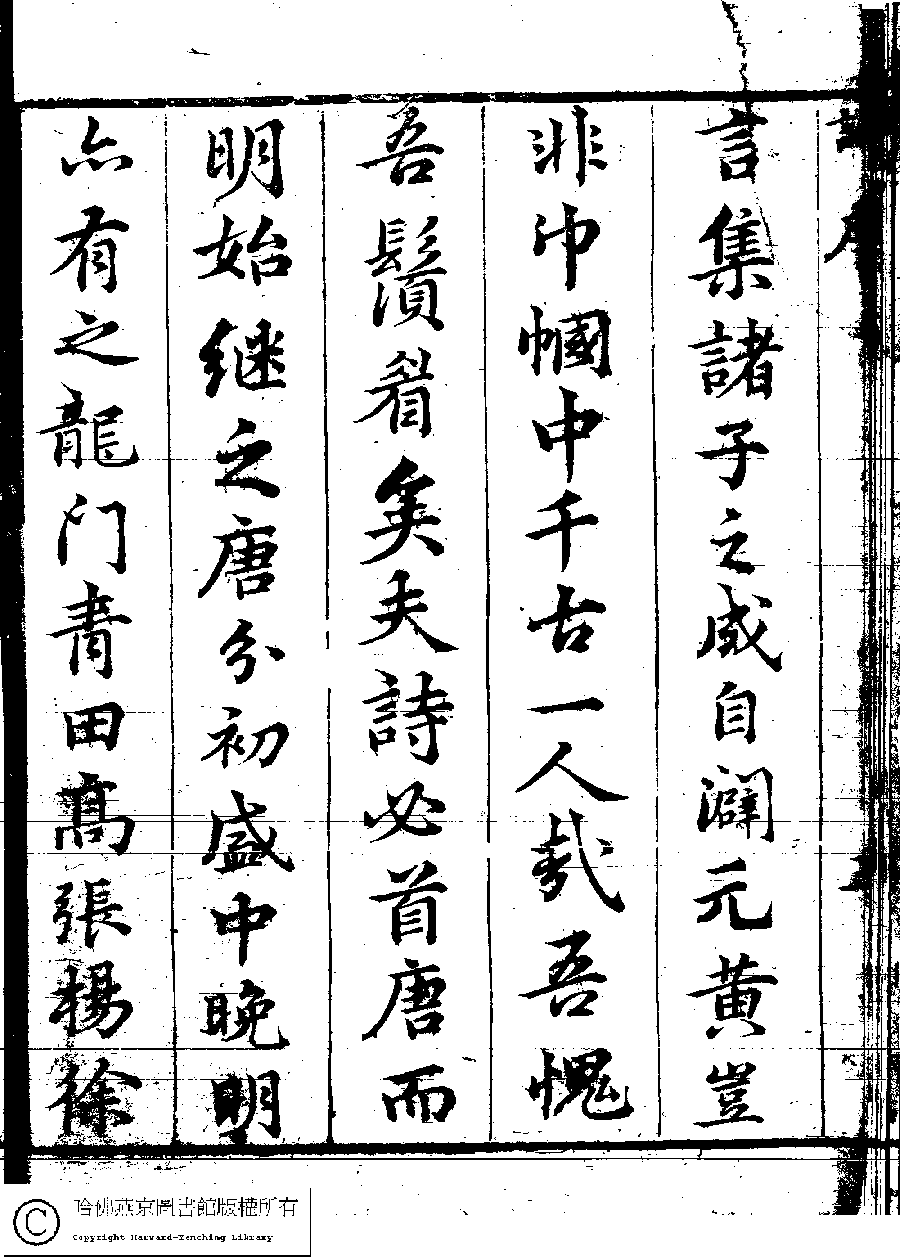 言集諸子之成自闢元黄豈
非巾幗中千古一人哉吾愧
吾鬚眉矣夫詩必首唐而
明始继之唐分初盛中晚明
亦有之龍门青田髙張楊徐
哈佛燕京圖書館版權所有
Copyright Harvard-Yenching Library